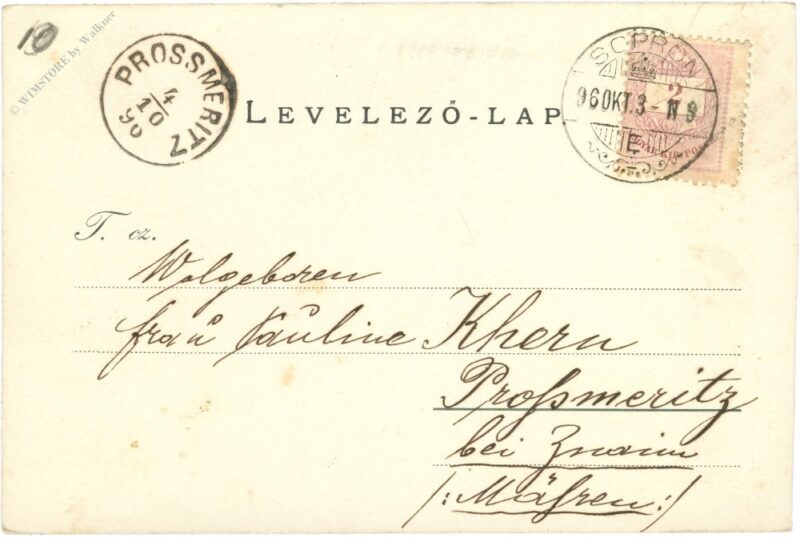 10
© WIMSTORE by Walkner
PROSSMERITZ
4/10
96
LEVELEZŐ-LAP.
SOPRON
96 OKT. 3 - N 9
E
2
T. cz.
Wolgeboren
frau Pauline Khern
Proßmeritz
bei Znaim
/: Mähren :/